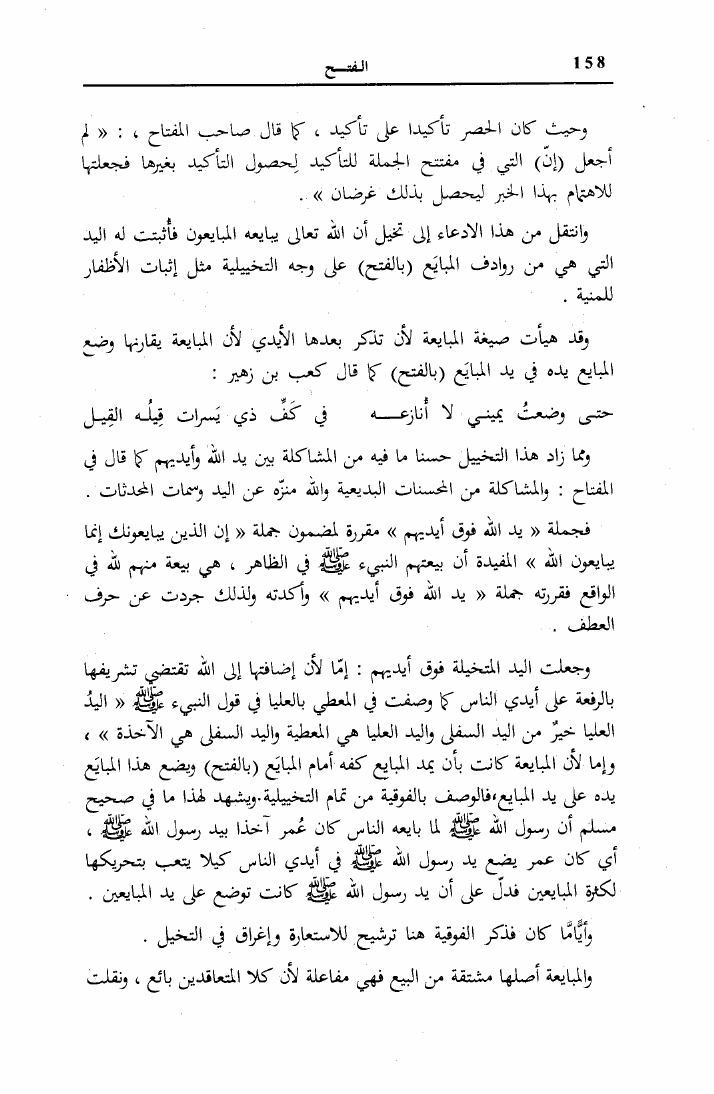 158
الفتـــح
وحيث كان الحصر تأكيدا على تأكيد ، كما قال صاحب المفتاح ، : « لم
أجعل (إنّ) التي في مفتتح الجملة للتأكيد لِحصول التأكيد بغيرها فجعلتها
للاهتمام بهذا الخبر ليحصل بذلك غرضان » .
وانتقل من هذا الادعاء إلى تخيل أن الله تعالى يبايعه المبايعون فأُثبتت له اليد
التي هي من روادف المبايَع (بالفتح) على وجه التخييلية مثل إثبات الأظفار
للمنية .
وقد هيأت صيغة المبايعة لأن تذكر بعدها الأيدي لأن المبايعة يقارنها وضع
المبايع يده في يد المبايَع (بالفتح) كما قال كعب بن زهير :
حتـى وضعتُ يمينـي لا أُنازعـــه في كَفِّ ذي يَسرات قِيلُـه القِيـل
ومما زاد هذا التخييل حسنا ما فيه من المشاكلة بين يد الله وأيديهم كما قال في
المفتاح : والمشاكلة من المحسنات البديعية والله منزّه عن اليد وسمات المحدثات .
فجملة « يد الله فوق أيديهم » مقررة لمضمون جملة « إن الذين يبايعونك إنما
يبايعون الله » المفيدة أن بيعتهم النبيء ﷺ في الظاهر ، هي بيعة منهم لله في
الواقع فقررته جملة « يد الله فوق أيديهم » وأكدته ولذلك جردت عن حرف
العطف .
وجعلت اليد المتخيلة فوق أيديهم : إمّا لأن إضافتها إلى الله تقتضي تشريفها
بالرفعة على أيدي الناس كما وصفت في المعطي بالعليا في قول النبيء ﷺ « اليدُ
العليا خيرٌ من اليد السفلى واليد العليا هي المعطية واليد السفلى هي الآخذة » ،
وإما لأن المبايعة كانت بأن يمد المبايع كفه أمام المبايَع (بالفتح) ويضع هذا المبايَع
يده على يد المبايع،فالوصف بالفوقية من تمام التخييلية.ويشهد لهذا ما في صحيح
مسلم أن رسول الله ﷺ لما بايعه الناس كان عُمر آخذا بيد رسول الله ﷺ ،
أي كان عمر يضع يد رسول الله ﷺ في أيدي الناس كيلا يتعب بتحريكها
لكثرة المبايعين فدلّ على أن يد رسول الله ﷺ كانت توضع على يد المبايعين .
وأيًّامَّا كان فذكر الفوقية هنا ترشيح للاستعارة وإغراق في التخيل .
والمبايعة أصلها مشتقة من البيع فهي مفاعلة لأن كلا المتعاقدين بائع ، ونقلت